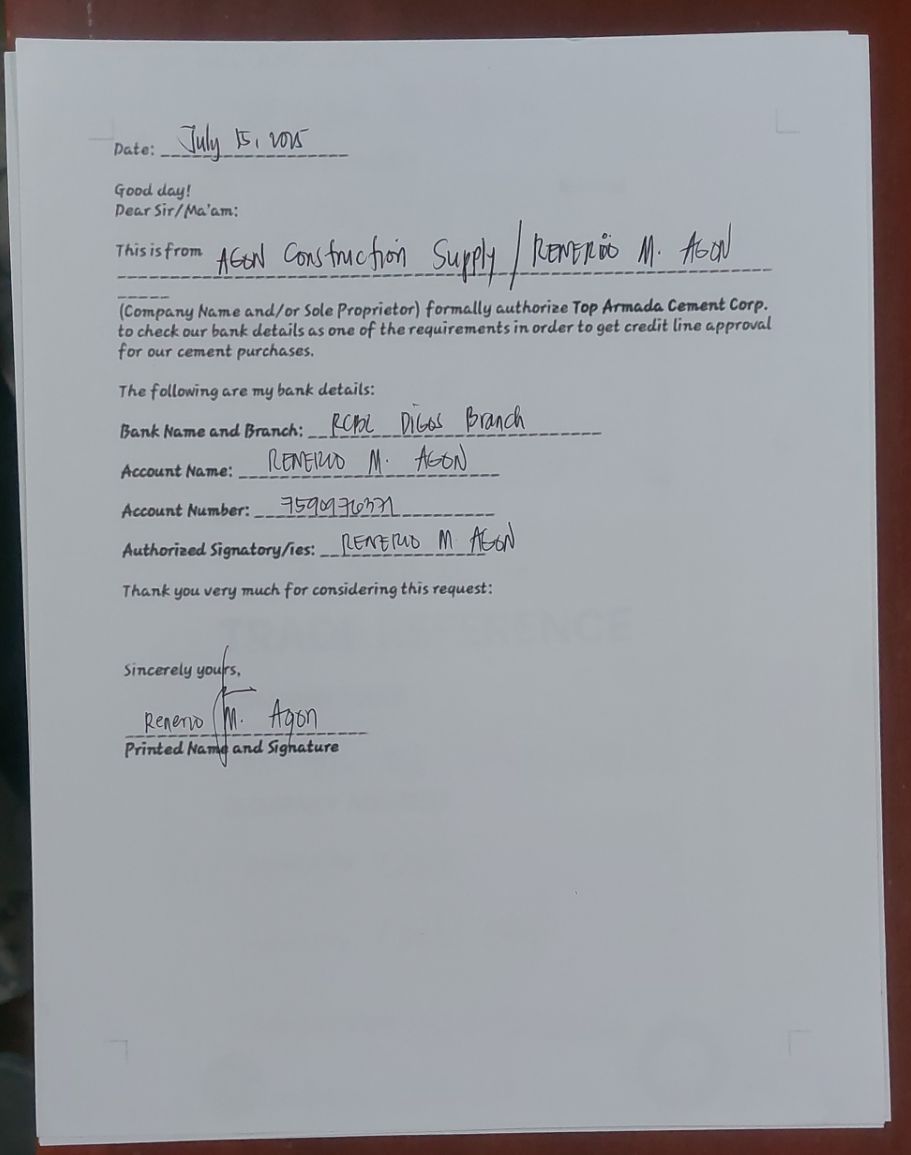 Date: July 15, 2025
Good day!
Dear Sir/Ma'am:
This is from AGON Construction Supply / RENERIO M. AGON
(Company Name and/or Sole Proprietor) formally authorize Top Armada Cement Corp.
to check our bank details as one of the requirements in order to get credit line approval
for our cement purchases.
The following are my bank details:
Bank Name and Branch: RCBC DIGOS Branch
Account Name: RENERIO M. AGON
Account Number:
Authorized Signatory/ies: RENERIO M AGON
Thank you very much for considering this request:
TRADE REFERENCE
Sincerely yours,
Renerio M. Agon
Printed Name and Signature